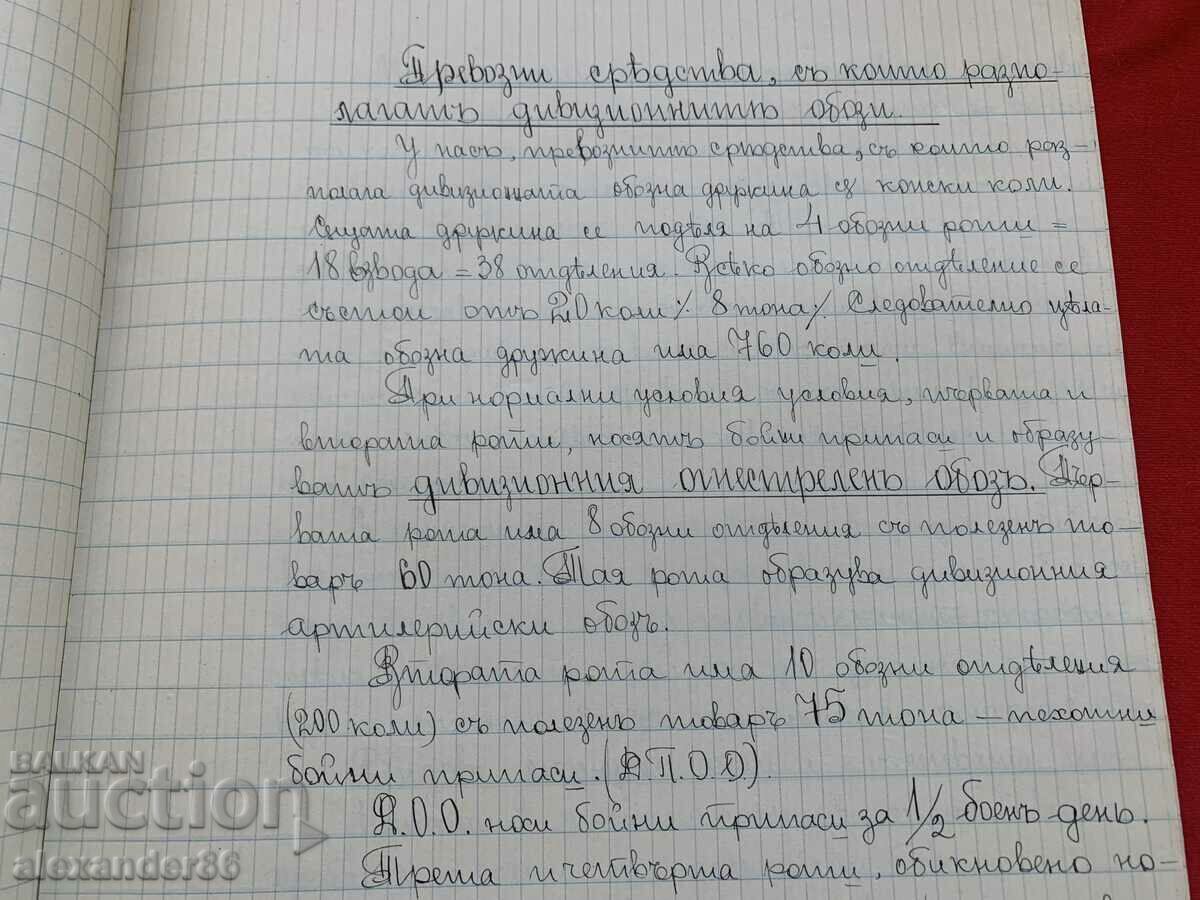 Превозни срѣдства, съ които разпо-
лагатъ дивизионнитѣ обози.
У насъ, превознитѣ срѣдства, съ които раз-
полага дивизионата обозна дружина сѫ конски коли.
Същата дружина се подѣля на 4 обозни роти =
18 взвода = 38 отдѣления. Всѣко обозно отдѣление се
състои отъ 20 коли /. 8 тона /. Следователно цѣла-
та обозна дружина има 760 коли.
При нормални условия условия, първата и
втората роти, носятъ бойни припаси и образу-
ватъ дивизионния огнестреленъ обозъ. Пър-
вата рота има 8 обозни отдѣления съ полезенъ то-
варъ 60 тона. Тая рота образува дивизионния
артилерийски обозъ.
Втората рота има 10 обозни отдѣления
(200 коли) съ полезенъ товаръ 75 тона – пехотни
бойни припаси. (Д.П.О.О).
Д.О.О. носи бойни припаси за 1/2 боенъ день.
Трета и четвърта роти, обикновено но-
BALKAN
auction
alexander86